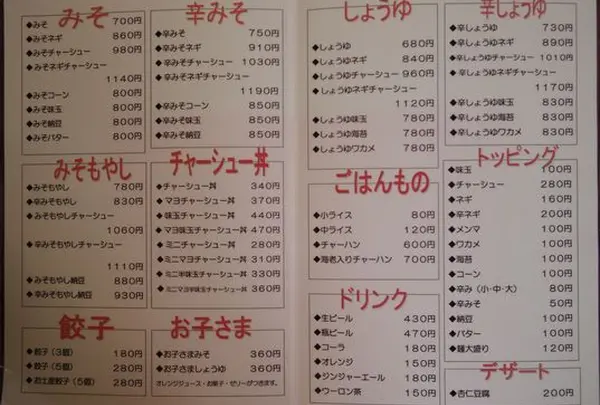 みそ
◆みそ 700円
◆みそネギ 860円
◆みそチャーシュー 980円
◆みそネギチャーシュー
1140円
◆みそコーン 800円
◆みそ味玉 800円
◆みそ納豆 800円
◆みそバター 800円
辛みそ
◆辛みそ 750円
◆辛みそネギ 910円
◆辛みそチャーシュー 1030円
◆辛みそネギチャーシュー
1190円
◆辛みそコーン 850円
◆辛みそ味玉 850円
◆辛みそ納豆 850円
みそもやし
◆みそもやし 780円
◆辛みそもやし 830円
◆みそもやしチャーシュー
1060円
◆辛みそもやしチャーシュー
1110円
◆みそもやし納豆 880円
◆辛みそもやし納豆 930円
チャーシュー丼
◆チャーシュー丼 340円
◆マヨチャーシュー丼 370円
◆味玉チャーシュー丼 440円
◆マヨ味玉チャーシュー丼 470円
◆ミニチャーシュー丼 280円
◆ミニマヨチャーシュー丼 310円
◆ミニ半味玉チャーシュー丼 330円
◆ミニマヨ半味玉チャーシュー丼 360円
餃子
◆餃子(3個) 180円
◆餃子(5個) 280円
◆お土産餃子(5個) 280円
お子さま
◆お子さまみそ 360円
◆お子さましょうゆ 360円
オレンジジュース・お菓子・ゼリーがつきます。
しょうゆ
◆しょうゆ 680円
◆しょうゆネギ 840円
◆しょうゆチャーシュー 960円
◆しょうゆネギチャーシュー
1120円
◆しょうゆ味玉 780円
◆しょうゆ海苔 780円
◆しょうゆワカメ 780円
辛しょうゆ
◆辛しょうゆ 730円
◆辛しょうゆネギ 890円
◆辛しょうゆチャーシュー 1010円
◆辛しょうゆネギチャーシュー
1170円
◆辛しょうゆ味玉 830円
◆辛しょうゆ海苔 830円
◆辛しょうゆワカメ 830円
ごはんもの
◆小ライス 80円
◆中ライス 120円
◆チャーハン 600円
◆海老入りチャーハン 700円
ドリンク
◆生ビール 430円
◆瓶ビール 470円
◆コーラ 180円
◆オレンジ 150円
◆ジンジャーエール 180円
◆ウーロン茶 150円
トッピング
◆味玉 100円
◆チャーシュー 280円
◆ネギ 160円
◆辛ネギ 200円
◆メンマ 100円
◆ワカメ 100円
◆海苔 100円
◆コーン 100円
◆辛み(小・中・大) 80円
◆辛みそ 50円
◆納豆 100円
◆バター 100円
◆麺大盛り 120円
デザート
◆杏仁豆腐 200円